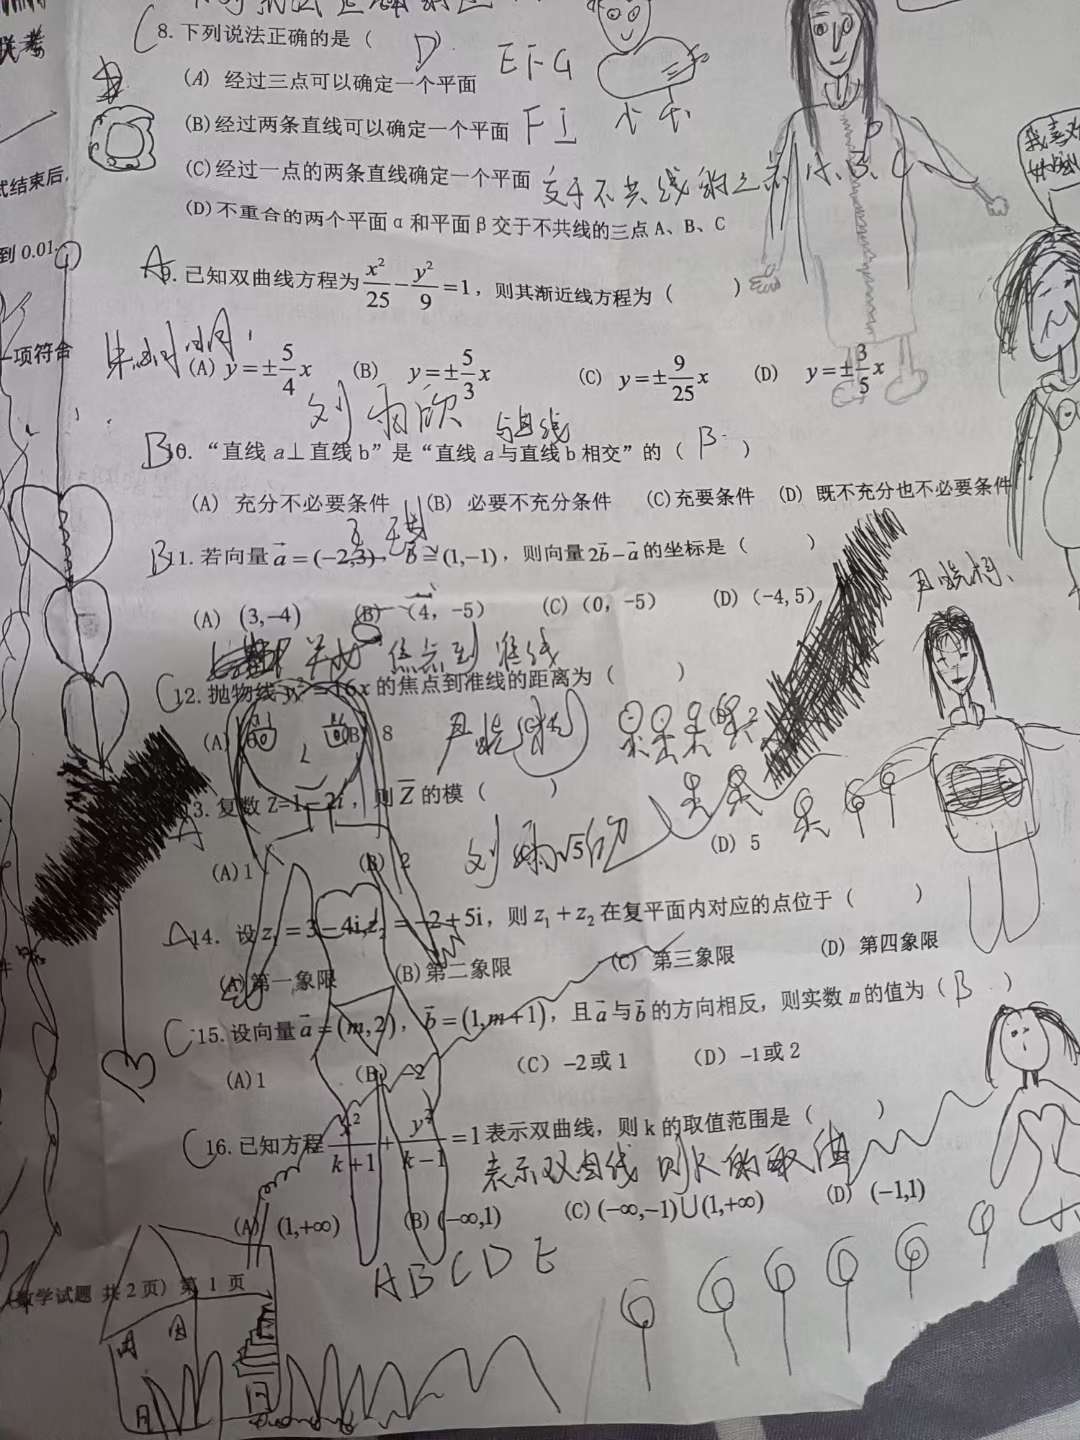 联考
C 8. 下列说法正确的是（ D ）
(A) 经过三点可以确定一个平面 E F G
(B) 经过两条直线可以确定一个平面 F I
(C) 经过一点的两条直线确定一个平面 交于不共线的三点 A、B、C
(D) 不重合的两个平面 α 和平面 β 交于不共线的三点 A、B、C
试结束后,
到 0.01.
一项符合
我喜欢
A 9. 已知双曲线方程为 x²/25 − y²/9 =1，则其渐近线方程为（ ）
(A) y=±5/4 x (B) y=±5/3 x (C) y=±9/25 x (D) y=±3/5 x
刘雨欣 与曲线
B 10. “直线 a⊥直线 b”是“直线 a 与直线 b 相交”的（ B ）
(A) 充分不必要条件 (B) 必要不充分条件 (C) 充要条件 (D) 既不充分也不必要条件
B 11. 若向量 a⃗=(−2,3)，b⃗=(1,−1)，则向量 2b⃗−a⃗ 的坐标是（ ）
(A) (3,−4) (B) (4, -5) (C) (0, -5) (D) (-4, 5)
焦点到准线
C 12. 抛物线 y²=16x 的焦点到准线的距离为（ ）
(A) (B) 8
A 13. 复数 Z=1−2i，则 Z̅ 的模（ ）
(A) 1 (B) 2 √5 (D) 5
刘雨
A 14. 设 z₁=3−4i, z₂=−2+5i，则 z₁+z₂ 在复平面内对应的点位于（ ）
(A) 第一象限 (B) 第二象限 (C) 第三象限 (D) 第四象限
C 15. 设向量 a⃗=(m,2)，b⃗=(1,m+1)，且 a⃗ 与 b⃗ 的方向相反，则实数 m 的值为（ B ）
(A) 1 (B) −2 (C) -2 或 1 (D) -1 或 2
C 16. 已知方程 x²/(k+1) + y²/(k−1) =1 表示双曲线，则 k 的取值范围是（ ）
表示双曲线 则K的取值
(A) (1,+∞) (B) (−∞,1) (C) (−∞,−1)∪(1,+∞) (D) (−1,1)
A B C D E
(数学试题 共 2 页) 第 1 页